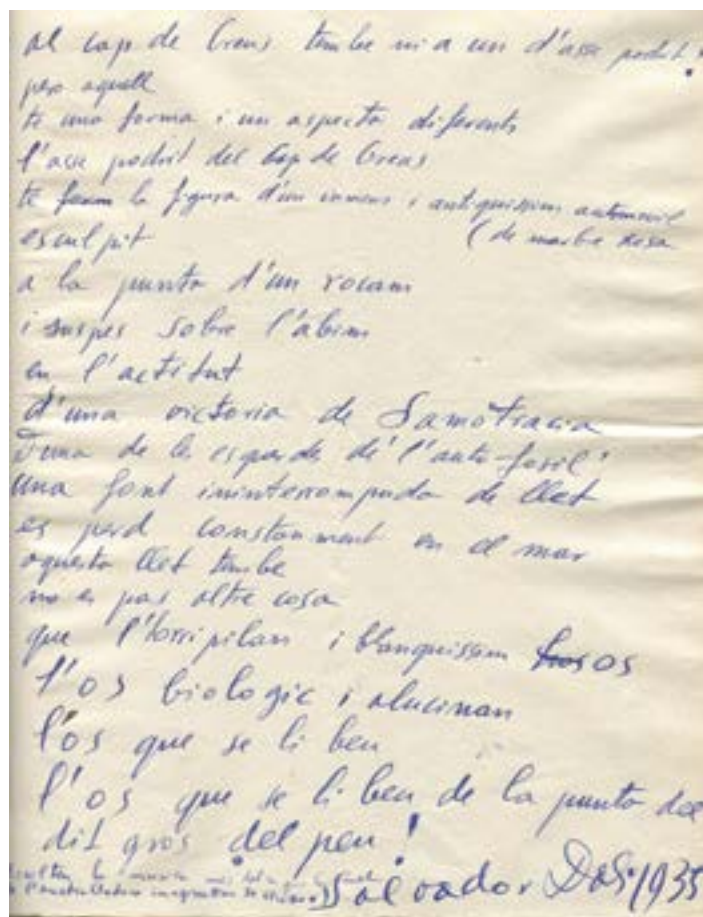 al cap de Creus tambe ni a un d'ase podrit!
pero aquell
te una forma i un aspecta diferents
l'ase podrit del Cap de Creus
te form la figura d'un inmens i antiquissim automovil
esculpit (de marbre rosa
a la punta d'un rocam
i suspes sobre l'abim
en l'actitut
d'una victoria de Samotracia
D'una de les esquerdes de l'auto-fosil!
una font ininterrompuda de llet
es perd constanment en el mar
aquesta llet tambe
no es pas altre cosa
que l'horripilan i blanquissim os
l'os biologic i alucinan
l'os que se li beu
l'os que se li beu de la punta del
dit gros del peu!
Salvador Dalí 1935